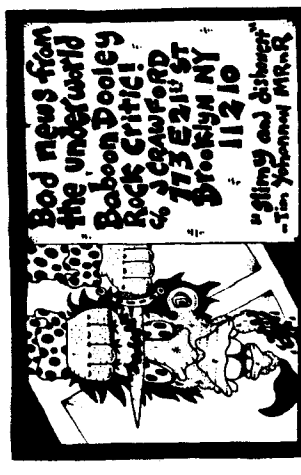 Bad news from
the underworld
Baboon Dooley
Rock Critic!
c/o J CRAWFORD
173 E 21st ST
Brooklyn NY
11210
"slimy and dishonest"
-Tim Yohannon MRnR